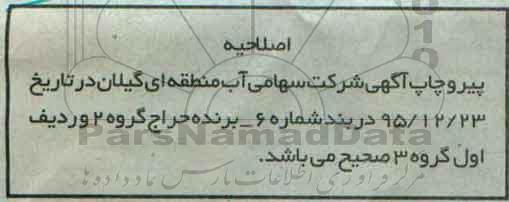 اصلاحیه
پیرو چاپ آگهی شرکت سهامی آب منطقه ای گیلان در تاریخ
۹۵/۱۲/۲۳ در بند شماره ۶ _ برنده حراج گروه ۲ و ردیف
ParsNamadData
اول گروه ۳ صحیح می باشد.
مرکز فرآوری اطلاعات پارس نماد داده ها